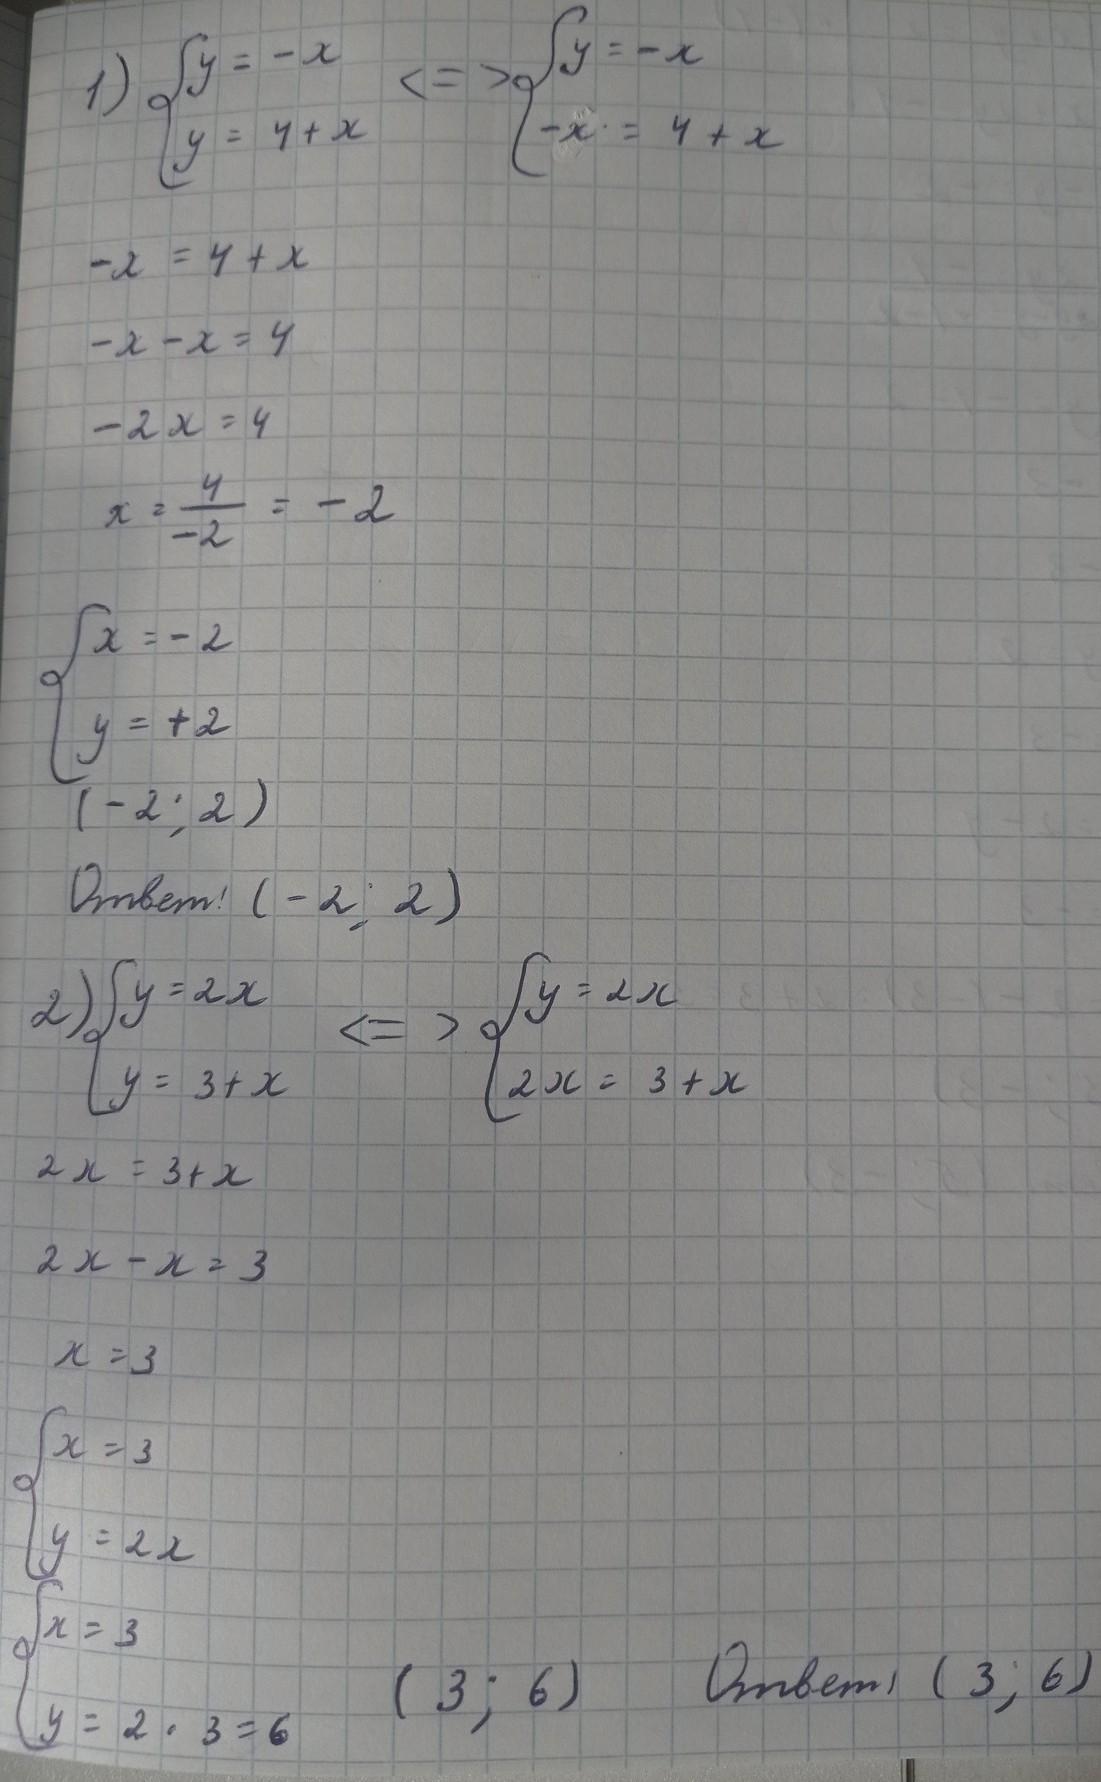 1) { y = -x <=> { y = -x
y = 4 + x -x = 4 + x
-x = 4 + x
-x - x = 4
-2x = 4
x = 4/-2 = -2
{ x = -2
y = +2
(-2; 2)
Ответ: (-2; 2)
2) { y = 2x <=> { y = 2x
y = 3 + x 2x = 3 + x
2x = 3 + x
2x - x = 3
x = 3
{ x = 3
y = 2x
{ x = 3
y = 2 · 3 = 6 (3; 6) Ответ: (3; 6)